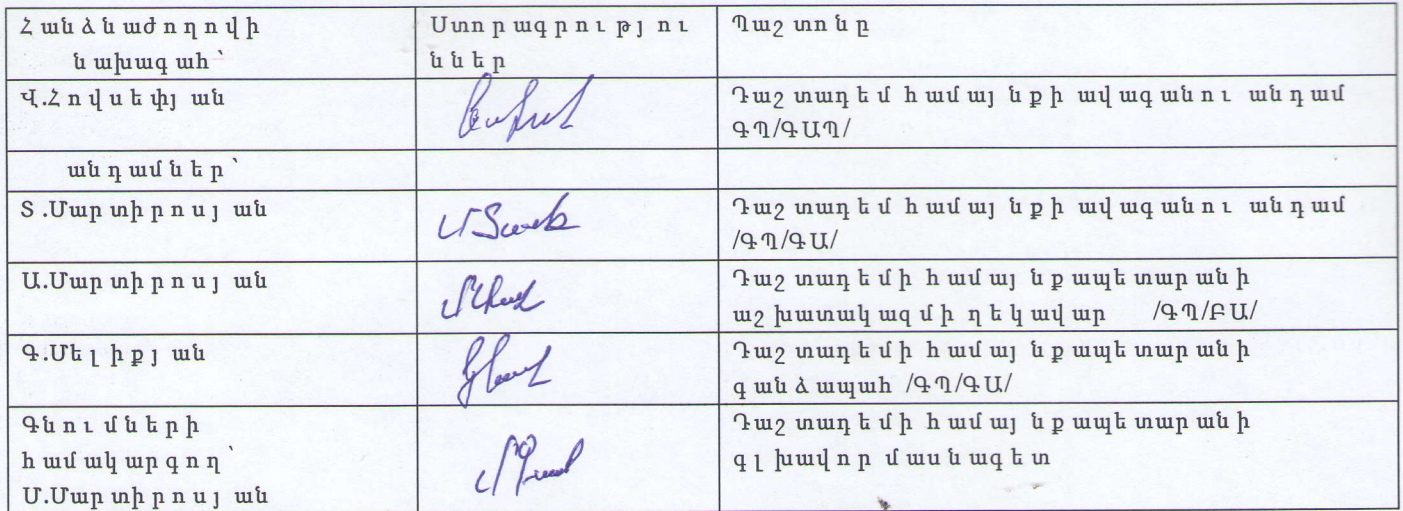 Հանձնաժողովի
նախագահ՝
Ստորագրությու
ններ
Պաշտոնը
Վ.Հովսեփյան
Դաշտադեմ համայնքի ավագանու անդամ
ԳՊ/ԳԱՊ/
անդամներ՝
Տ.Մարտիրոսյան
Դաշտադեմ համայնքի ավագանու անդամ
/ԳՊ/ԳԱ/
Ա.Մարտիրոսյան
Դաշտադեմի համայնքապետարանի
աշխատակազմի ղեկավար /ԳՊ/ԲԱ/
Գ.Մելիքյան
Դաշտադեմի համայնքապետարանի
գանձապահ /ԳՊ/ԳԱ/
Գնումների
համակարգող՝
Մ.Մարտիրոսյան
Դաշտադեմի համայնքապետարանի
գլխավոր մասնագետ